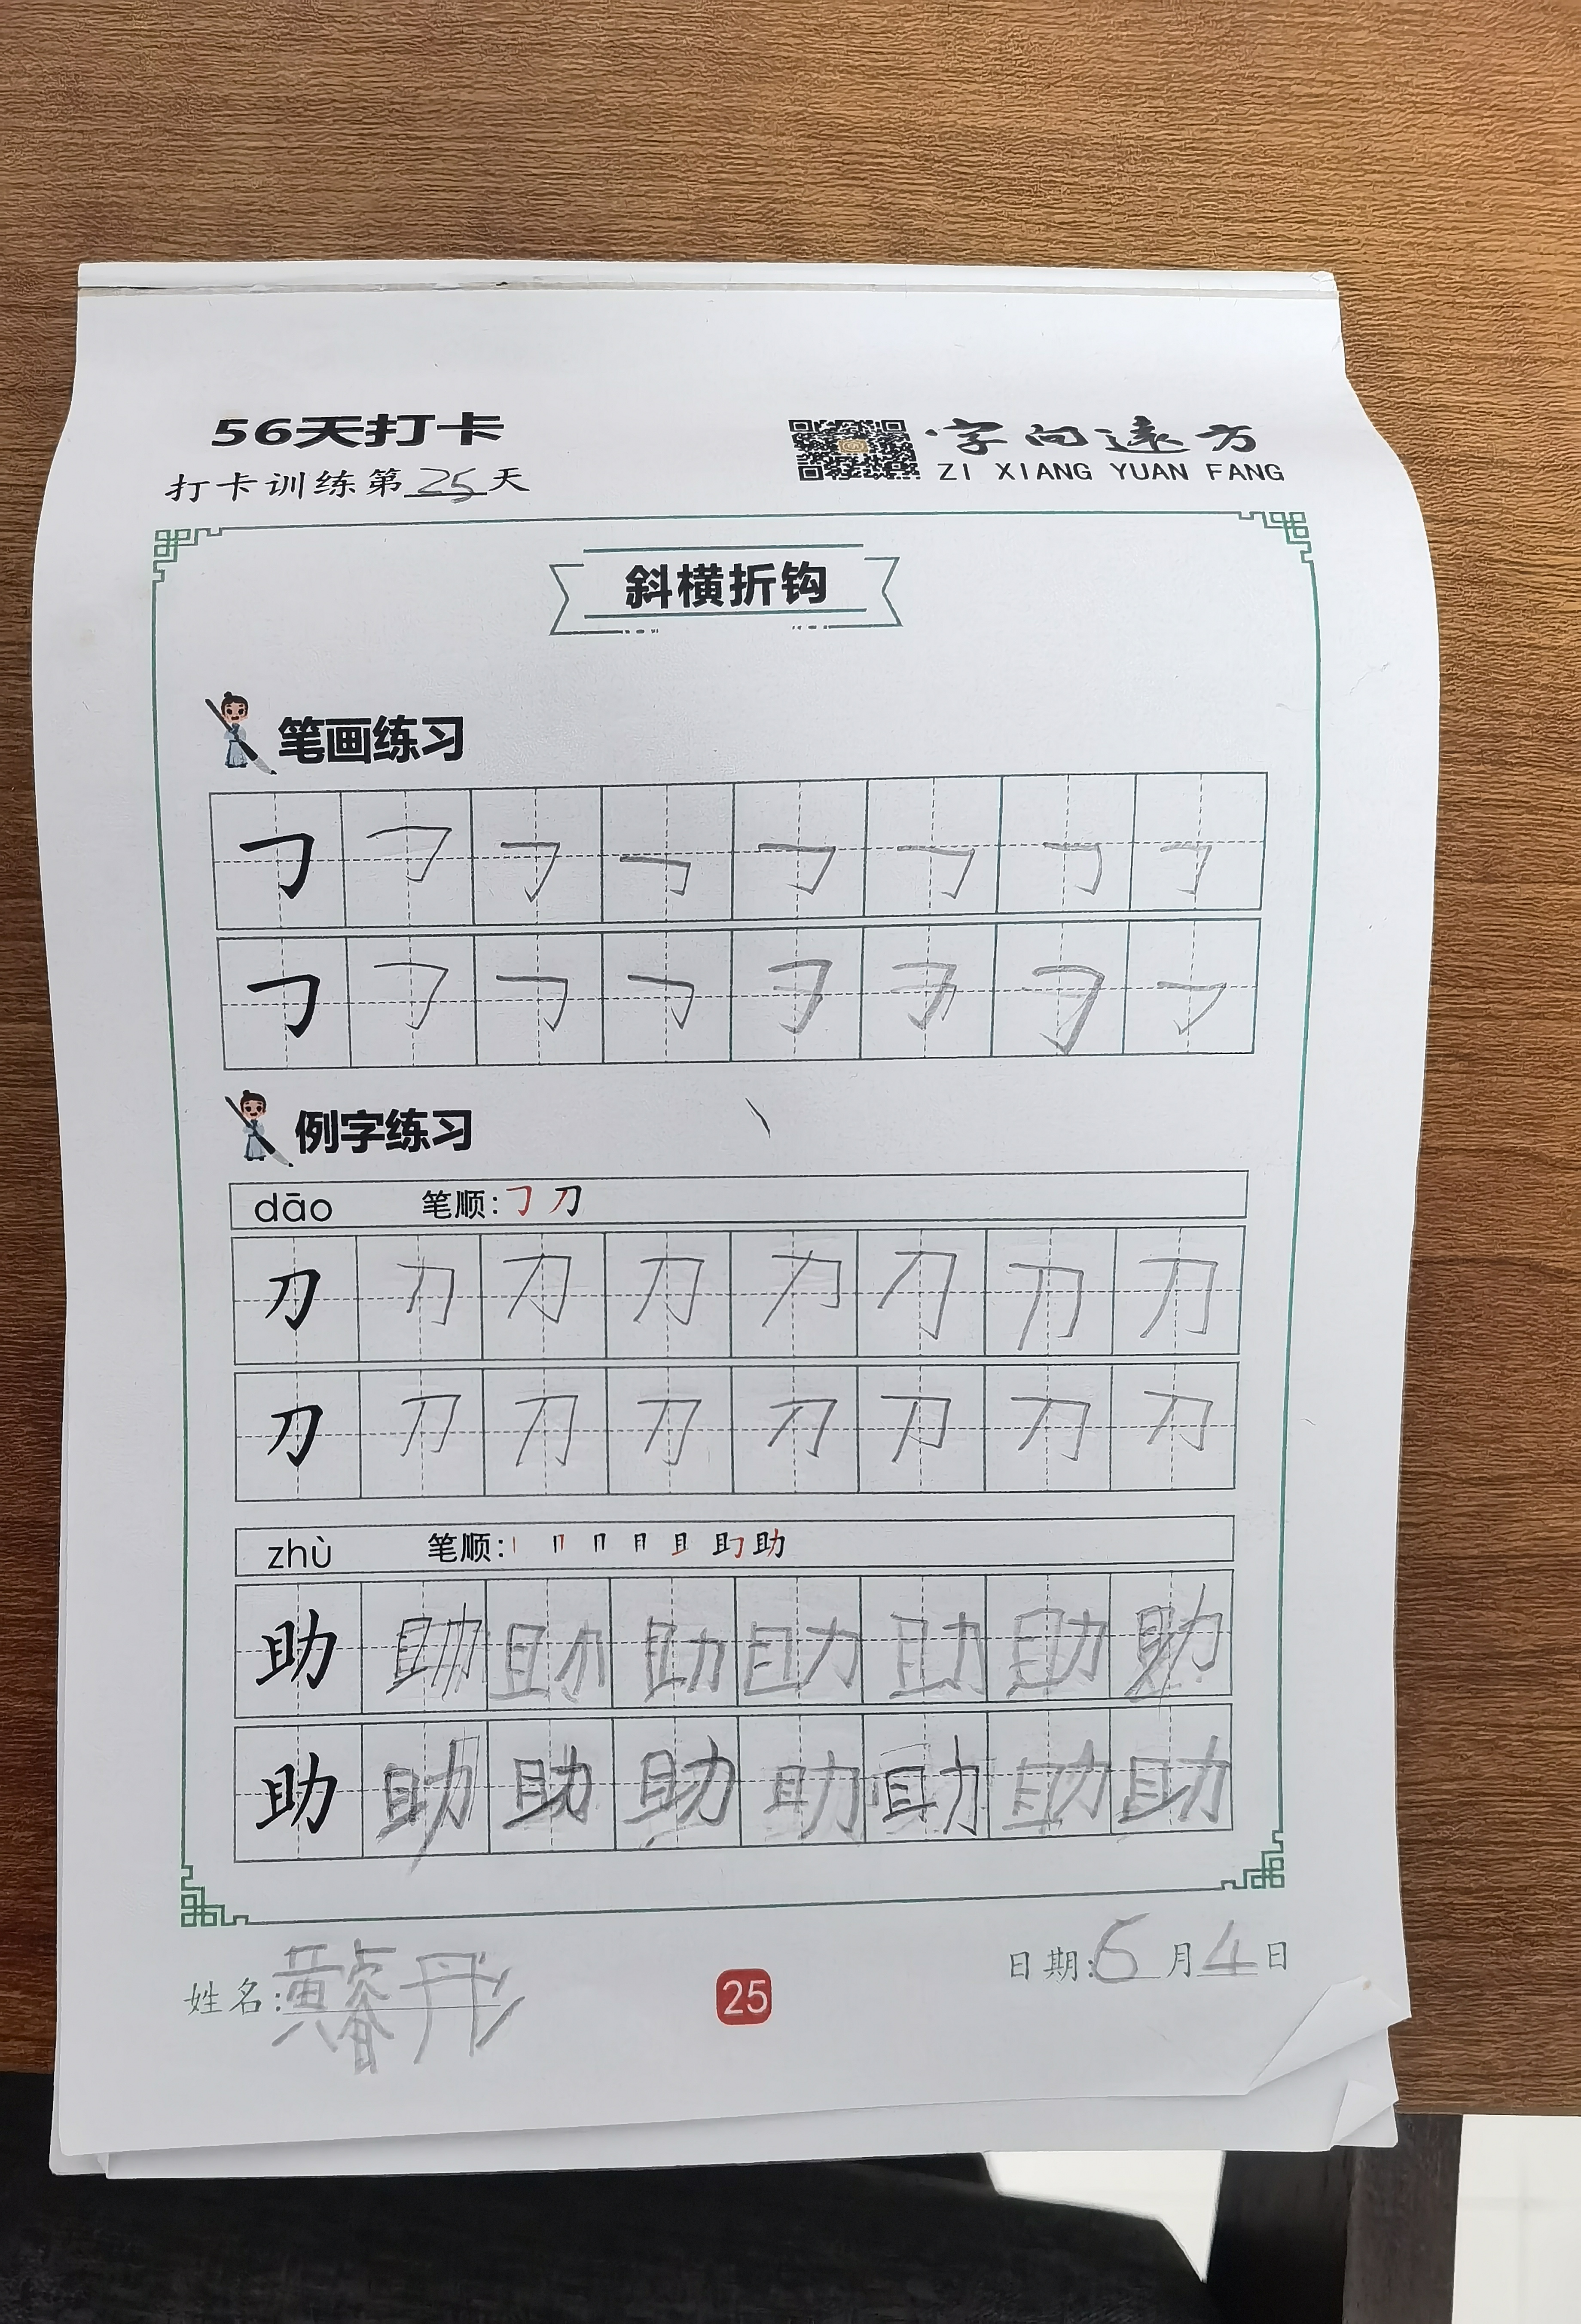 56天打卡
字向遠方
打卡训练第25天
ZI XIANG YUAN FANG
斜横折钩
笔画练习
㇆ ㇆ ㇆ ㇆ ㇆ ㇆ ㇆ ㇆
㇆ ㇆ ㇆ ㇆ ㇆ ㇆ ㇆ ㇆
例字练习
dāo 笔顺: ㇆ 刀
刀 刀 刀 刀 刀 刀 刀 刀
刀 刀 刀 刀 刀 刀 刀 刀
zhù 笔顺: 丨 冂 月 且 助
助 助 助 助 助 助 助 助
助 助 助 助 助 助 助 助
姓名: 黄睿彤
25
日期: 6月4日